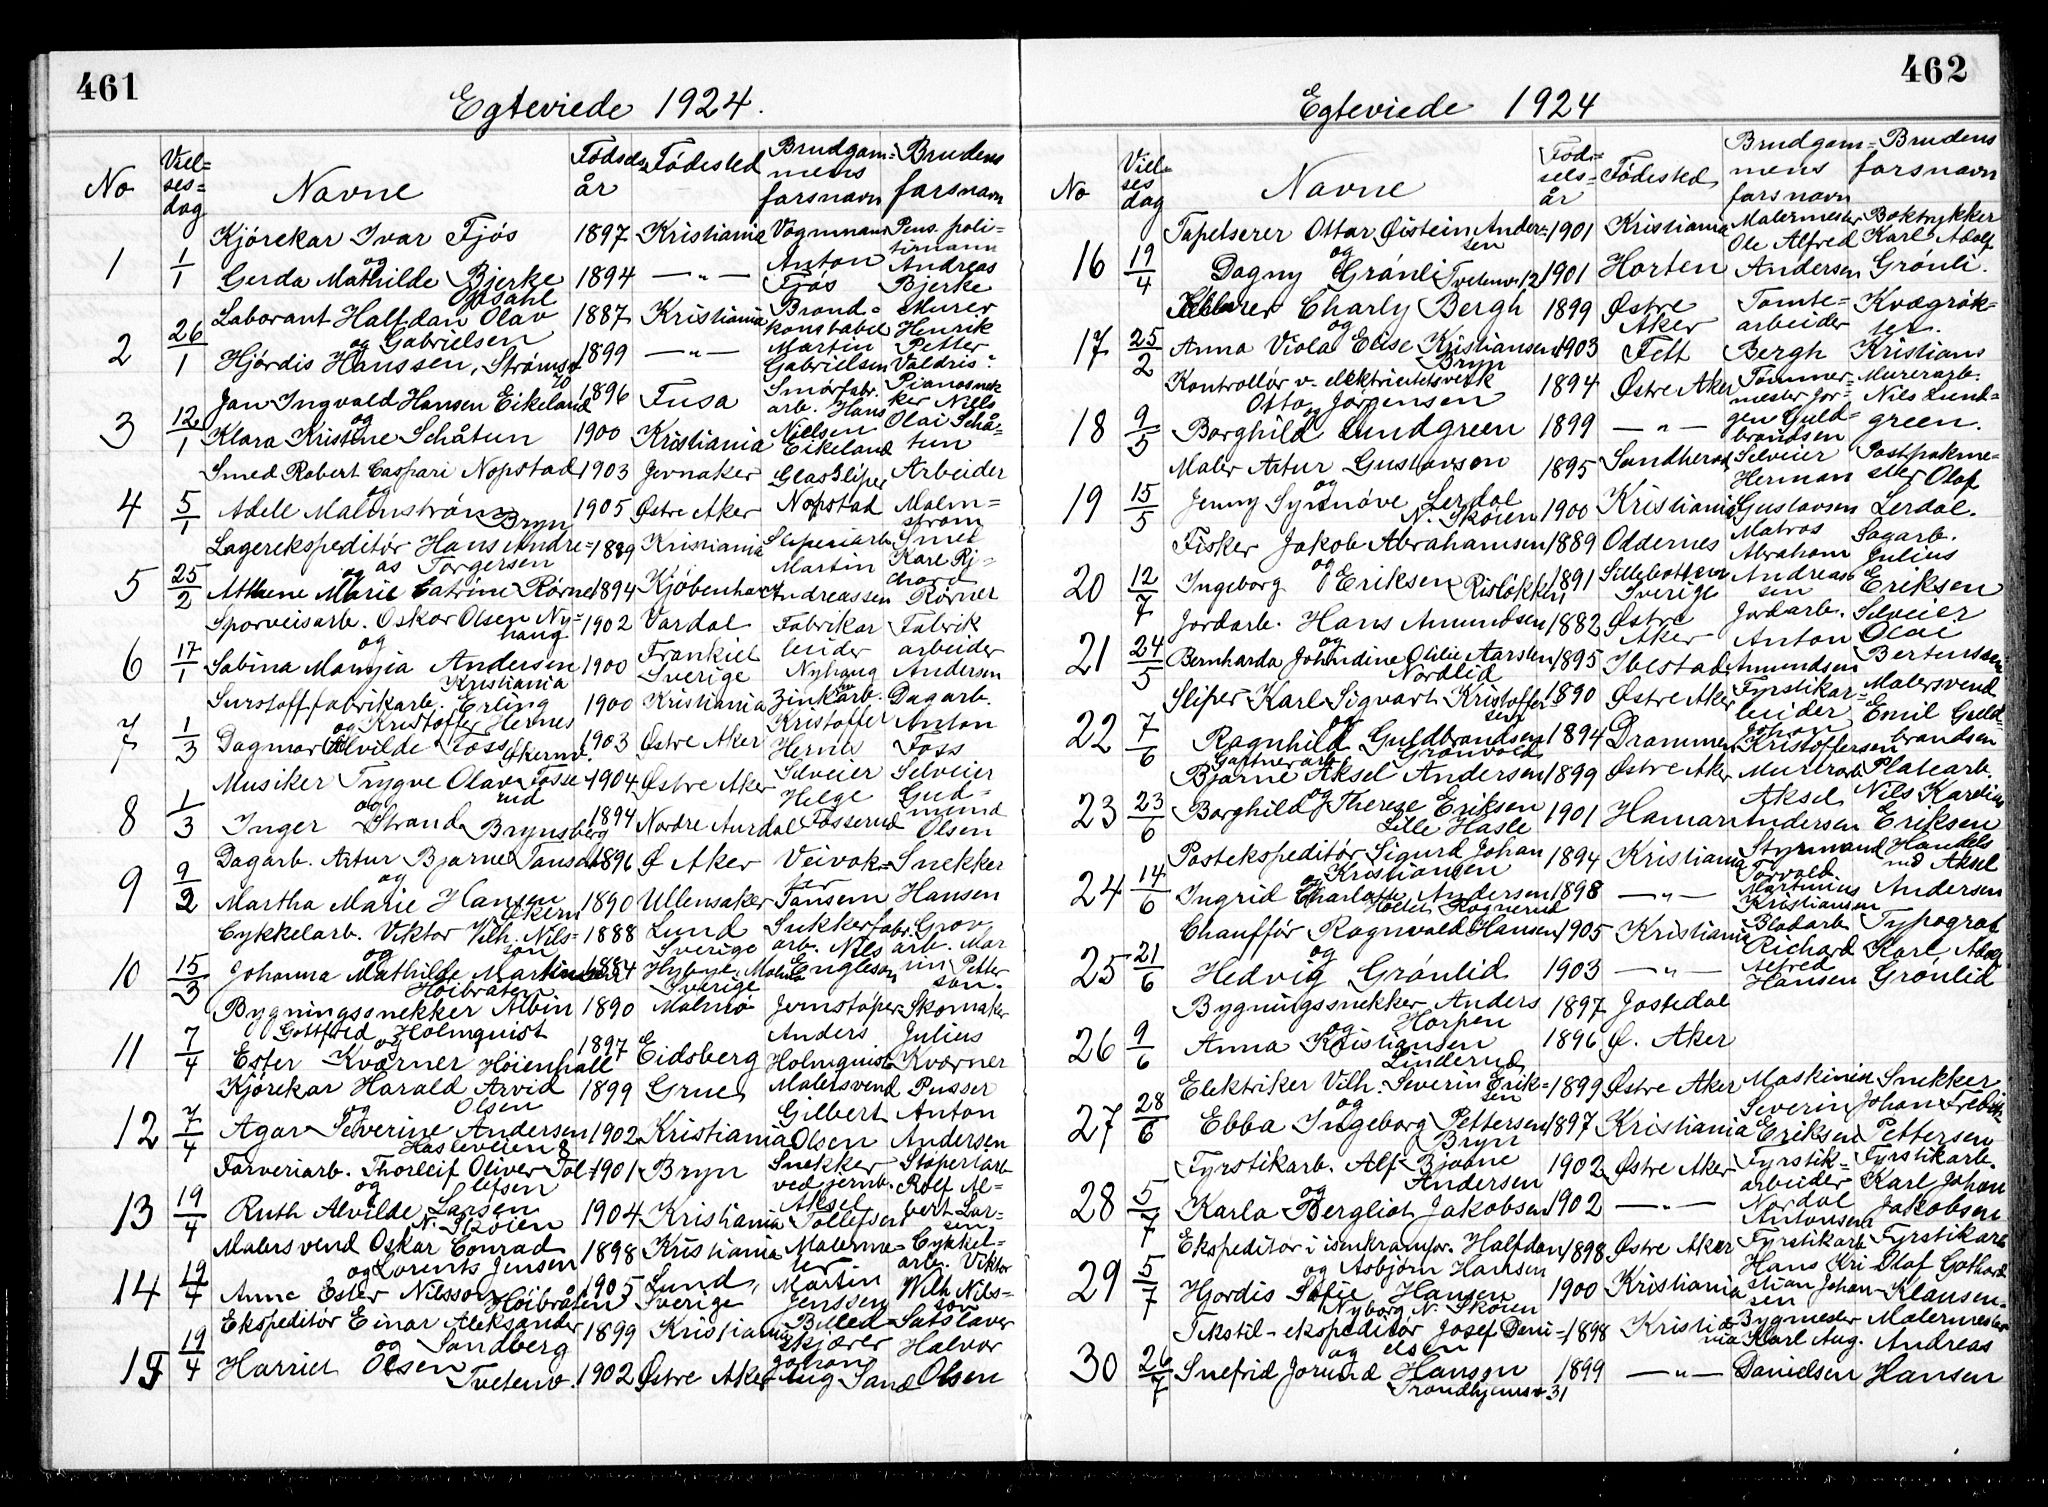 461
Egteviede 1924.
No Viel-ses-dag Navne Fødsels år Fødested Brudgam-mens farsnavn Brudens farsnavn
1 1/1 Kjørekar Ivar Fjøs 1897 Kristiania Vognmann Anton Fjøs
og Gerda Mathilde Bjerke 1894 — " — Pens. poli-timann Andreas Bjerke
2 26/1 Laborant Halfdan Olav Gabrielsen 1887 Kristiania Brand-konstabel Martin Gabrielsen
og Hjørdis Hanssen, 1899 — " — Murer Henrik Petter
3 12/1 Jan Ingvald Hansen Eikeland 1896 Fusa Smørfabr. arb. Hans Nielsen Eikeland
og Klara Kristine Schåtun 1900 Kristiania Pianosnek-ker Niels Olai Schå-tun
4 5/1 Smed Robert Caspari Nopstad 1903 Jevnaker Glassliper Nopstad
og Adele Malmstrøm Bryn 1905 Østre Aker Arbeider Malm-strøm
5 25/2 Lagerekspeditør Hans Andre-as Torgersen 1889 Kristiania Sliperiarb. Martin Andreassen
og Marie Catrine Rørner 1894 Kjøbenhavn Smed Karl Ri-chard Rørner
6 17/1 Sporveisarb. Oskar Olsen Ny-haug 1902 Vardal Fabrikar beider Nyhaug
og Sabina Andersen Kristiania 1900 Sverige Fabrik arbeider Andersen
7 1/3 Surstoffabrikarb. Erling Kristoffer Hernes 1900 Kristiania Kristoffer Hernes
og Dagmar Alvilde Foss Økernv. 1903 Østre Aker Dagarb. Anton Foss
8 1/3 Musiker Trygve Olav Fosse-rud 1904 Østre Aker Selveier Helge Fosserud
og Inger Strand Brynsberg 1894 Nordre Aurdal Selveier Gud-mund Olsen
9 9/2 Dagarb. Artur Bjarne Tansem 1896 Ø Aker Veivok-ter Tansem
og Martha Marie Hansen Økern 1890 Ullensaker Snekker Hansen
10 15/3 Cykkelarb. Viktor Vilh. Nils-son 1888 Lund Sverige Sukkerfabr. arb. Nils
og Johanna Mathilde Martinsson Høibråten 1884 Sverige Grov arb. Mar tin Petter son.
11 7/4 Bygningssnekker Albin Gottfred Holmquist 1890 Malmø Jernstøper Anders Holmquist
og Ester Kværner Høienhall 1897 Eidsberg Skomaker Julius Kværner
12 7/4 Kjørekar Harald Arvid Olsen 1899 Grue Malersvend Gilbert Olsen
og Agar Severine Andersen Hasleveien 8 1902 Kristiania Pusser Anton Andersen
13 19/4 Farveriarb. Thorleif Oliver Tol-lefsen 1901 Bryn Snekker ved jernb. Aksel Tollefsen
og Ruth Alvilde Larsen N. Skøien 1904 Kristiania Støperiarb Rolf Al-bert Lar-sen
14 19/4 Malersvend Oskar Conrad Lorents Jensen 1898 Kristiania Malerme-ster Martin Jenssen
og Anna Ester Nilsson Høibråten 1905 Lund, Sverige Cykkel-arb. Viktor Wilh. Nils-son
15 19/4 Ekspeditør Einar Aleksander Sandberg 1899 Kristiania Billed-skjærer Johan Aug Sand
og Harriet Olsen Tvetenv. 1902 Østre Aker Halvor Olsen
462
Egteviede 1924
No Viel-ses dag Navne Fød-sels-år Fødested Brudgam-mens farsnavn Brudens farsnavn
16 19/4 Tapetserer Ottar Øistein Ander-sen 1901 Kristiania Malermester Ole Alfred Andersen
og Dagny Grønli Tvetenv. 12 1901 Horten Boktrykker Karl Adolf Grønli.
17 25/2 Charly Bergh 1899 Østre Aker Tomte-arbeider Bergh
og Anna Viola Elise Kristiansen Bryn 1903 Fett Kvægrøk-ter. Kristians
18 9/5 Kontrollør v. elektricitetsverk Otto Jørgensen 1894 Østre Aker Tømmer-mester Jør-gen Guld-brandsen
og Borghild Lundgreen 1899 — " — Murerarb. Nils Lund-green.
19 15/5 Maler Artur Gustavson 1895 Sandherad Selveier Herman Gustavsen
og Jenny Synnøve Lerdal N. Skøien 1900 Kristiania Postpakme-ster Olaf Lerdal.
20 12/7 Fisker Jakob Abrahamsen 1889 Oddernes Matros Abraham Andreas sen
og Ingeborg Eriksen Risløkken 1891 Sverige Sagarb. Julius Eriksen
21 24/5 Jordarb. Hans Amundsen 1882 Østre Aker Jordarb. Anton Amundsen
og Bernharda Johndine Otilie Aarsten Nordlid 1895 Ibestad Selveier Olai Bertensen
22 7/6 Sliper Karl Sigvart Kristoffer-sen 1890 Østre Aker Fyrstikar-beider Johan Kristoffersen
og Ragnhild Guldbrandsen Grønvold 1894 Drammen Malersvend Emil Guld-brandsen
23 23/6 Gartnerarb. Bjarne Aksel Andersen 1899 Østre Aker Murerarb Aksel Andersen
og Borghild Therese Eriksen Lille Hasle 1901 Hamar Platearb. Nils Karelius Eriksen
24 14/6 Postekspeditør Sigurd Johan Kristiansen 1894 Kristiania Styrmand Torvald Martinius Kristiansen
og Ingrid Charlotte Andersen 1898 — " — Handels md Aksel Andersen
25 21/6 Chauffør Ragnvald Hansen 1905 Kristiania Richard Alfred Hansen
og Hedvig Grønlid 1903 — " — Typograf Karl Grønlid
26 9/6 Bygningssnekker Anders Horpen 1897 Jostedal
og Anna Kristiansen Linderud 1896 Ø. Aker
27 28/6 Elektriker Vilh. Severin Erik-sen 1899 Østre Aker Maskinist Severin Eriksen
og Ebba Ingeborg Pettersen Bryn 1897 Kristiania Snekker Johan Pettersen
28 5/7 Fyrstikarb. Alf Bjarne Andersen 1902 Østre Aker Fyrstik-arbeider Nordal Antonsen
og Karla Bergliot Jakobsen 1902 — " — Fyrstikarb. Karl Johan Jakobsen
29 5/7 Ekspeditør i isenkramfor. Halfdan Asbjørn Hansen 1898 Østre Aker Fyrstikarb Hans Kri-stian Johan-sen
og Hjordis Sofie Hansen Nyborg N. Skøien 1900 Kristiania Fyrstikarb Olaf Gothard Klausen.
30 26/7 Tekstil-ekspeditør Josef Dani-elsen 1898 Kristia nia Bygmester Karl Aug. Danielsen
og Snefrid Jorund Hanson Trondhjemsv 31 1899 — " — Malermester Andreas Hansen